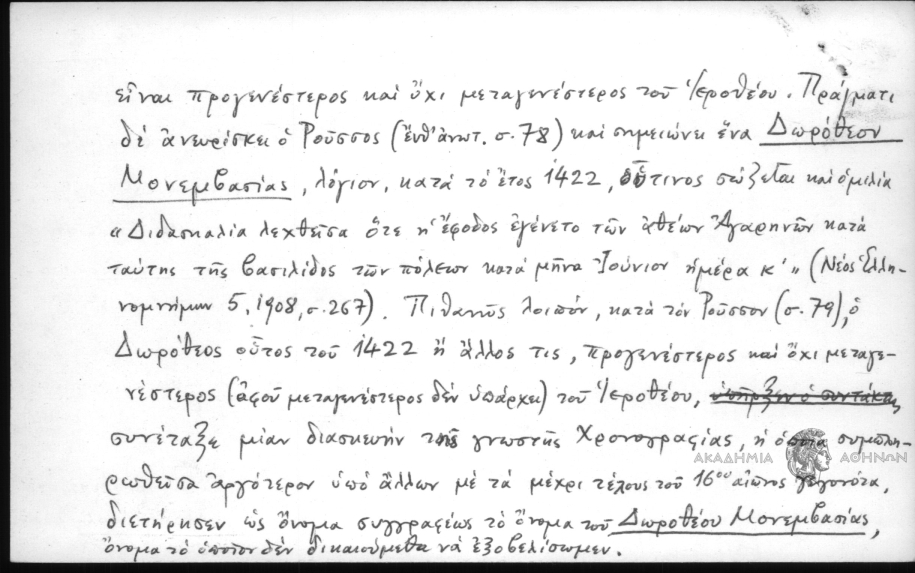 εἶναι προγενέστερος καὶ ὄχι μεταγενέστερος τοῦ Ἱεροθέου. Πράγματι
δὲ ἀνευρίσκει ὁ Ροῦσσος (ἔνθ' ἀνωτ. σ. 78) καὶ σημειώνει ἕνα Δωρόθεον
Μονεμβασίας, λόγιον, κατὰ τὸ ἔτος 1422, οὗτινος σώζεται καὶ ὁμιλία
«Διδασκαλία λεχθεῖσα ὅτε ἡ ἔφοδος ἐγένετο τῶν ἀθέων Ἀγαρηνῶν κατὰ
ταύτης τῆς βασιλίδος τῶν πόλεων κατὰ μῆνα Ἰούνιον ἡμέρα κ'» (Νέος Ἑλλη-
νομνήμων 5, 1908, σ. 267). Πιθανῶς λοιπόν, κατὰ τὸν Ροῦσσον (σ. 79), ὁ
Δωρόθεος οὗτος τοῦ 1422 ἢ ἄλλος τις, προγενέστερος καὶ ὄχι μεταγε-
νέστερος (ἀφοῦ μεταγενέστερος δὲν ὑπάρχει) τοῦ Ἱεροθέου, ὑπῆρξεν ὁ συντάκτης
συνέταξε μίαν διασκευὴν τῆς γνωστῆς Χρονογραφίας, ἡ ὁποία συμπλη-
ρωθεῖσα ἀργότερον ὑπὸ ἄλλων μὲ τὰ μέχρι τέλους τοῦ 16ου αἰῶνος γεγονότα,
διετήρησεν ὡς ὄνομα συγγραφέως τὸ ὄνομα τοῦ Δωροθέου Μονεμβασίας,
ὄνομα τὸ ὁποῖον δὲν δικαιούμεθα νὰ ἐξοβελίσωμεν.
ΑΚΑΔΗΜΙΑ ΑΘΗΝΩΝ